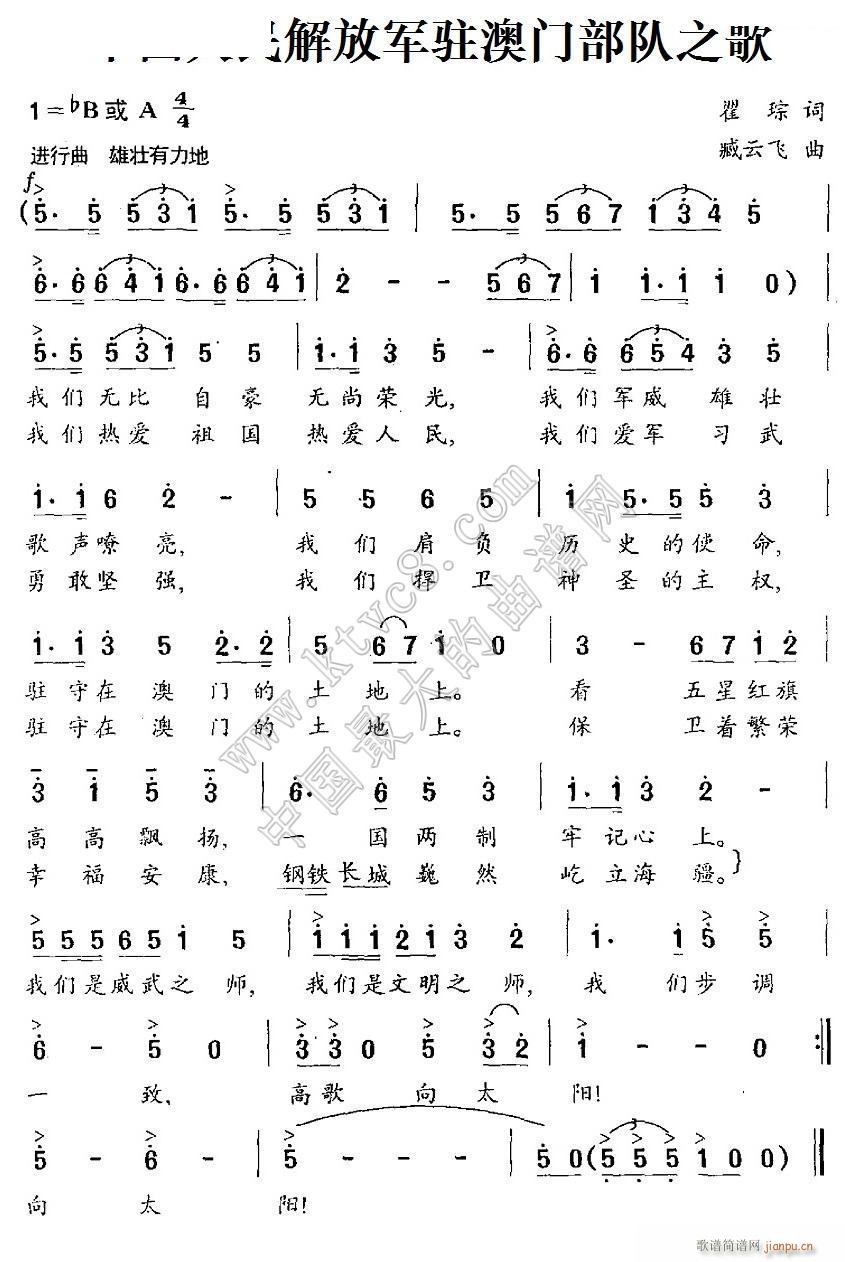 民解放军驻澳门部队之歌
1=♭B或 A 4/4
瞿 琮 词
进行曲 雄壮有力地
臧云飞 曲
f
(5· 5 5 3 1 5· 5 5 3 1 | 5· 5 5 5 6 7 1 3 4 5 |
6· 6 6 4 1 6· 6 6 4 1 | 2 - - 5 6 7 | 1 1· 1 1 0 ) |
5· 5 5 3 1 5 5 | 1· 1 3 5 - | 6· 6 6 5 4 3 5
我们无比 自豪 无尚荣光, 我们军威 雄壮
我们热爱 祖国 热爱人民, 我们爱军 习武
1· 1 6 2 - | 5 5 6 5 | 1 5· 5 5 3 |
歌声嘹亮, 我们肩负 历史的使命,
勇敢坚强, 我们捍卫 神圣的主权,
1· 1 3 5 2· 2 | 5 6 7 1 0 | 3 - 6 7 1 2 |
驻守在澳门的土地上。 看 五星红旗
驻守在澳门的土地上。 保 卫着繁荣
3 1 5 3 | 6· 6 5 3 | 1· 1 3 2 - |
高高飘扬, 一国两制 牢记心上。
幸福安康, 钢铁长城巍然 屹立海疆。}
5 5 5 6 5 1 5 | 1 1 1 2 1 3 2 | 1· 1 5 5 |
我们是威武之师, 我们是文明之师, 我们步调
6 - 5 0 | 3 3 0 5 3 2 | 1 - - 0 :‖
一 致, 高歌 向太 阳!
5 - 6 - | 5 - - - | 5 0 ( 5 5 5 1 0 0 ) ‖
向 太 阳!
www.ktvc8.com
中国最大的曲谱网
歌谱简谱网
jianpu.cn